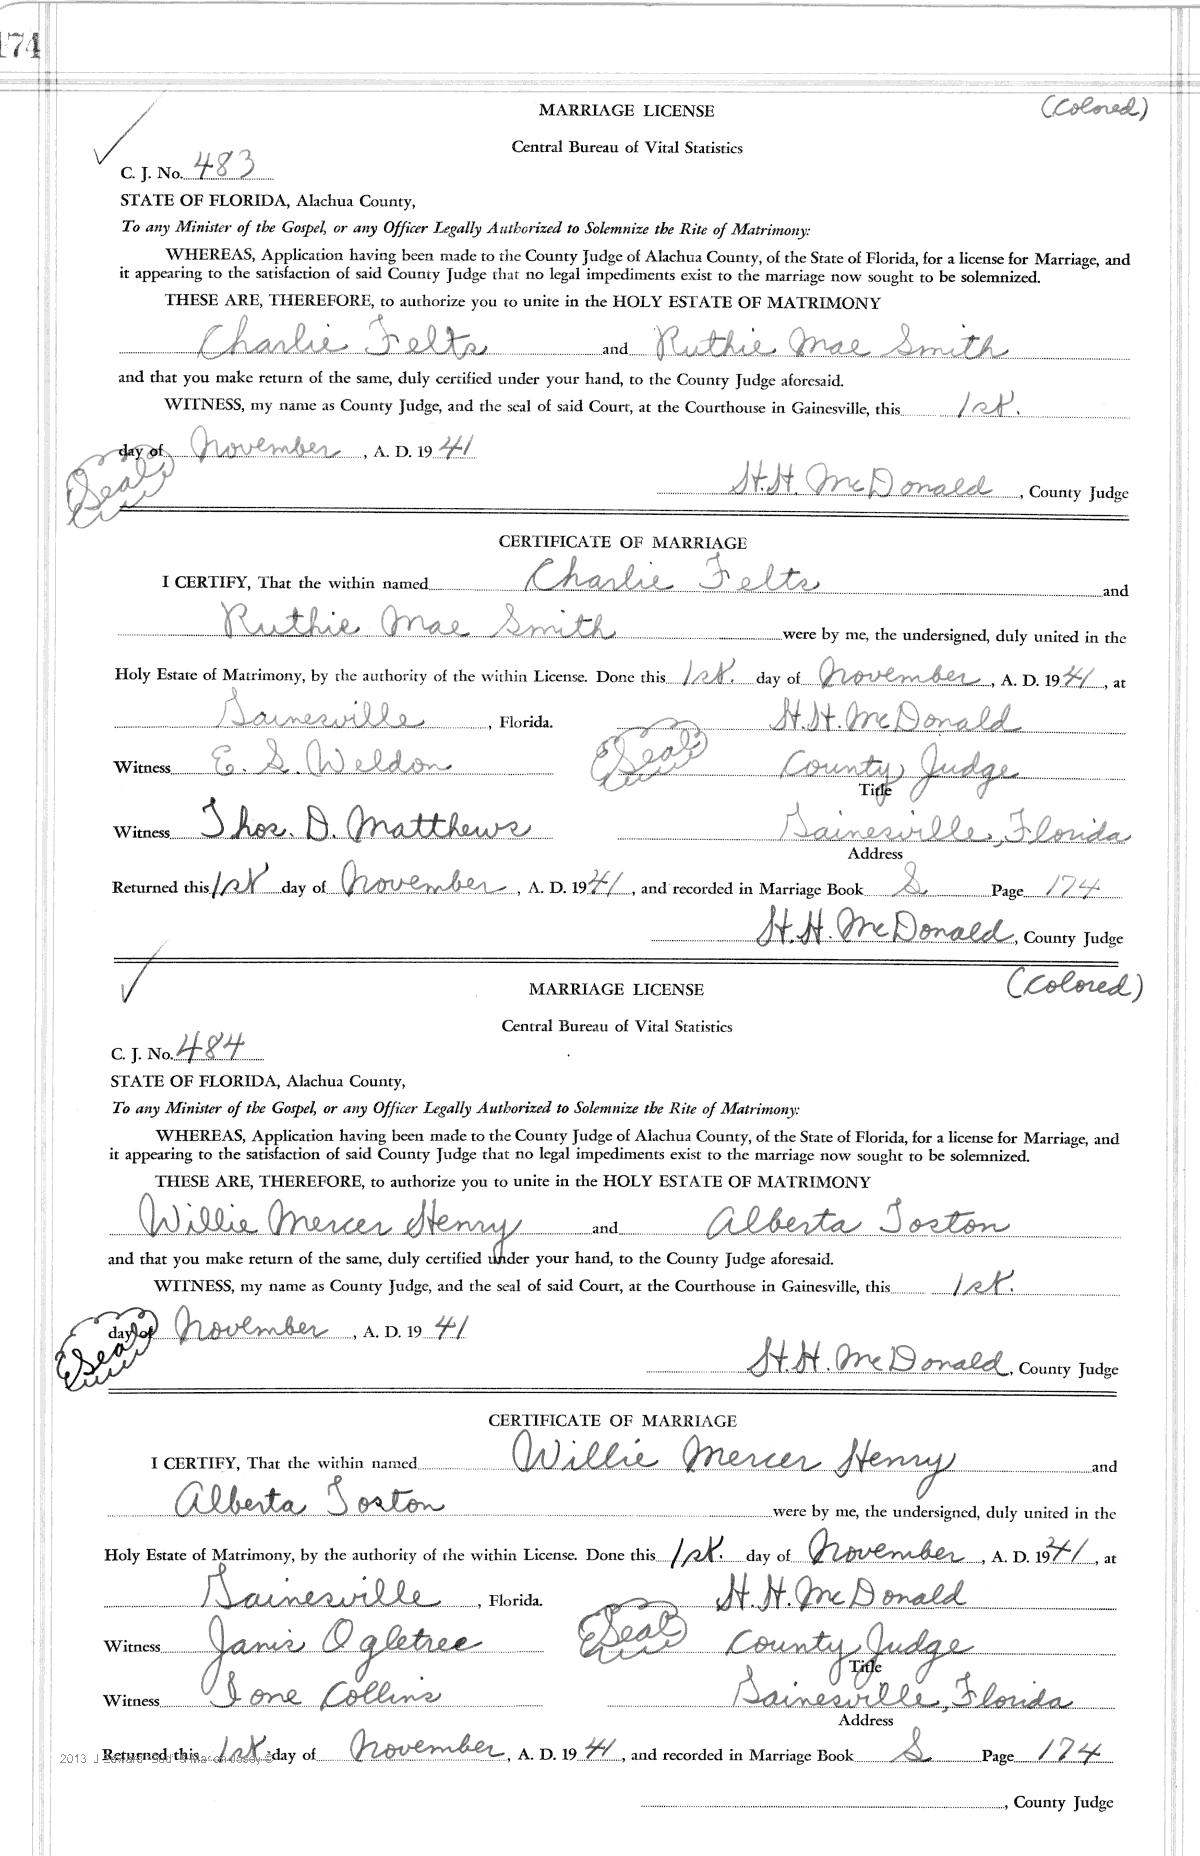 174
MARRIAGE LICENSE (Colored)
Central Bureau of Vital Statistics
C. J. No. 483
STATE OF FLORIDA, Alachua County,
To any Minister of the Gospel, or any Officer Legally Authorized to Solemnize the Rite of Matrimony:
WHEREAS, Application having been made to the County Judge of Alachua County, of the State of Florida, for a license for Marriage, and
it appearing to the satisfaction of said County Judge that no legal impediments exist to the marriage now sought to be solemnized.
THESE ARE, THEREFORE, to authorize you to unite in the HOLY ESTATE OF MATRIMONY
Charlie Felts and Ruthie Mae Smith
and that you make return of the same, duly certified under your hand, to the County Judge aforesaid.
WITNESS, my name as County Judge, and the seal of said Court, at the Courthouse in Gainesville, this 1st.
day of November, A. D. 1941
Seal H. H. McDonald, County Judge
CERTIFICATE OF MARRIAGE
I CERTIFY, That the within named Charlie Felts and
Ruthie Mae Smith were by me, the undersigned, duly united in the
Holy Estate of Matrimony, by the authority of the within License. Done this 1st. day of November, A. D. 1941, at
Gainesville, Florida. H. H. McDonald
Witness E. S. Weldon Seal County Judge
Title
Witness Thos. D. Matthews Gainesville, Florida
Address
Returned this 1st day of November, A. D. 1941, and recorded in Marriage Book S Page 174
H. H. McDonald, County Judge
MARRIAGE LICENSE (Colored)
Central Bureau of Vital Statistics
C. J. No. 484
STATE OF FLORIDA, Alachua County,
To any Minister of the Gospel, or any Officer Legally Authorized to Solemnize the Rite of Matrimony:
WHEREAS, Application having been made to the County Judge of Alachua County, of the State of Florida, for a license for Marriage, and
it appearing to the satisfaction of said County Judge that no legal impediments exist to the marriage now sought to be solemnized.
THESE ARE, THEREFORE, to authorize you to unite in the HOLY ESTATE OF MATRIMONY
Willie Mercer Henry and Alberta Toston
and that you make return of the same, duly certified under your hand, to the County Judge aforesaid.
WITNESS, my name as County Judge, and the seal of said Court, at the Courthouse in Gainesville, this 1st.
day of November, A. D. 1941
Seal H. H. McDonald, County Judge
CERTIFICATE OF MARRIAGE
I CERTIFY, That the within named Willie Mercer Henry and
Alberta Toston were by me, the undersigned, duly united in the
Holy Estate of Matrimony, by the authority of the within License. Done this 1st. day of November, A. D. 1941, at
Gainesville, Florida. H. H. McDonald
Witness Janis Ogletree Seal County Judge
Title
Witness Ione Collins Gainesville, Florida
Address
Returned this 1st day of November, A. D. 1941, and recorded in Marriage Book S Page 174
2013 J
, County Judge